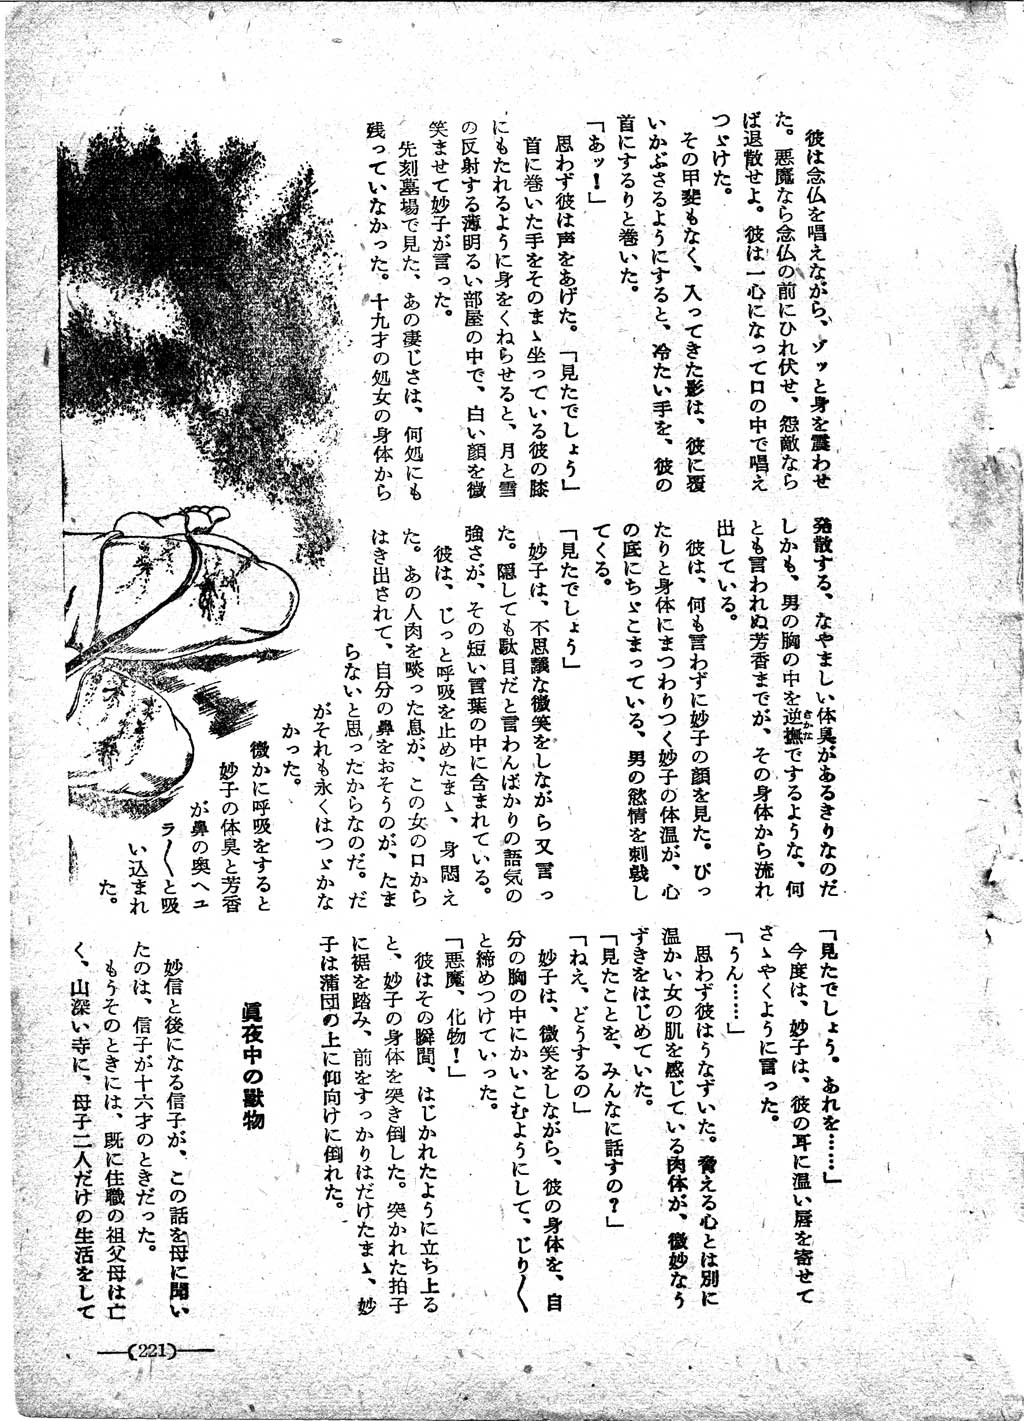 彼は念仏を唱えながら、ゾッと身を震わせ
た。悪魔なら念仏の前にひれ伏せ、怨敵なら
ば退散せよ。彼は一心になって口の中で唱え
つゞけた。
その甲斐もなく、入ってきた影は、彼に覆
いかぶさるようにすると、冷たい手を、彼の
首にするりと巻いた。
「あッ！」
思わず彼は声をあげた。「見たでしょう」
首に巻いた手をそのまゝ坐っている彼の膝
にもたれるように身をくねらせると、月と雪
の反射する薄明るい部屋の中で、白い顔を微
笑ませて妙子が言った。
先刻墓場で見た、あの凄じさは、何処にも
残っていなかった。十九才の処女の身体から
発散する、なやましい体臭があるきりなのだ
しかも、男の胸の中を逆撫でするような、何
さかな
とも言われぬ芳香までが、その身体から流れ
出している。
彼は、何も言わずに妙子の顔を見た。ぴっ
たりと身体にまつわりつく妙子の体温が、心
の底にちゞこまっている、男の慾情を刺戟し
てくる。
「見たでしょう」
妙子は、不思議な微笑をしながら又言っ
た。隠しても駄目だと言わんばかりの語気の
強さが、その短い言葉の中に含まれている。
彼は、じっと呼吸を止めたまゝ、身悶え
た。あの人肉を啖った息が、この女の口から
はき出されて、自分の鼻をおそうのが、たま
らないと思ったからなのだ。だ
がそれも永くはつゞかな
かった。
微かに呼吸をすると
妙子の体臭と芳香
が鼻の奥へユ
ラ〳〵と吸
い込まれ
た。
「見たでしょう。あれを……」
今度は、妙子は、彼の耳に温い唇を寄せて
さゝやくように言った。
「うん……」
思わず彼はうなずいた。脅える心とは別に
温かい女の肌を感じている肉体が、微妙なう
ずきをはじめていた。
「見たことを、みんなに話すの？」
「ねえ、どうするの」
妙子は、微笑をしながら、彼の身体を、自
分の胸の中にかいこむようにして、じり〳〵
と締めつけていった。
「悪魔、化物！」
彼はその瞬間、はじかれたように立ち上る
と、妙子の身体を突き倒した。突かれた拍子
に裾を踏み、前をすっかりはだけたまゝ、妙
子は蒲団の上に仰向けに倒れた。
眞夜中の獸物
妙信と後になる信子が、この話を母に聞い
たのは、信子が十六才のときだった。
もうそのときには、既に住職の祖父母は亡
く、山深い寺に、母子二人だけの生活をして
(221)